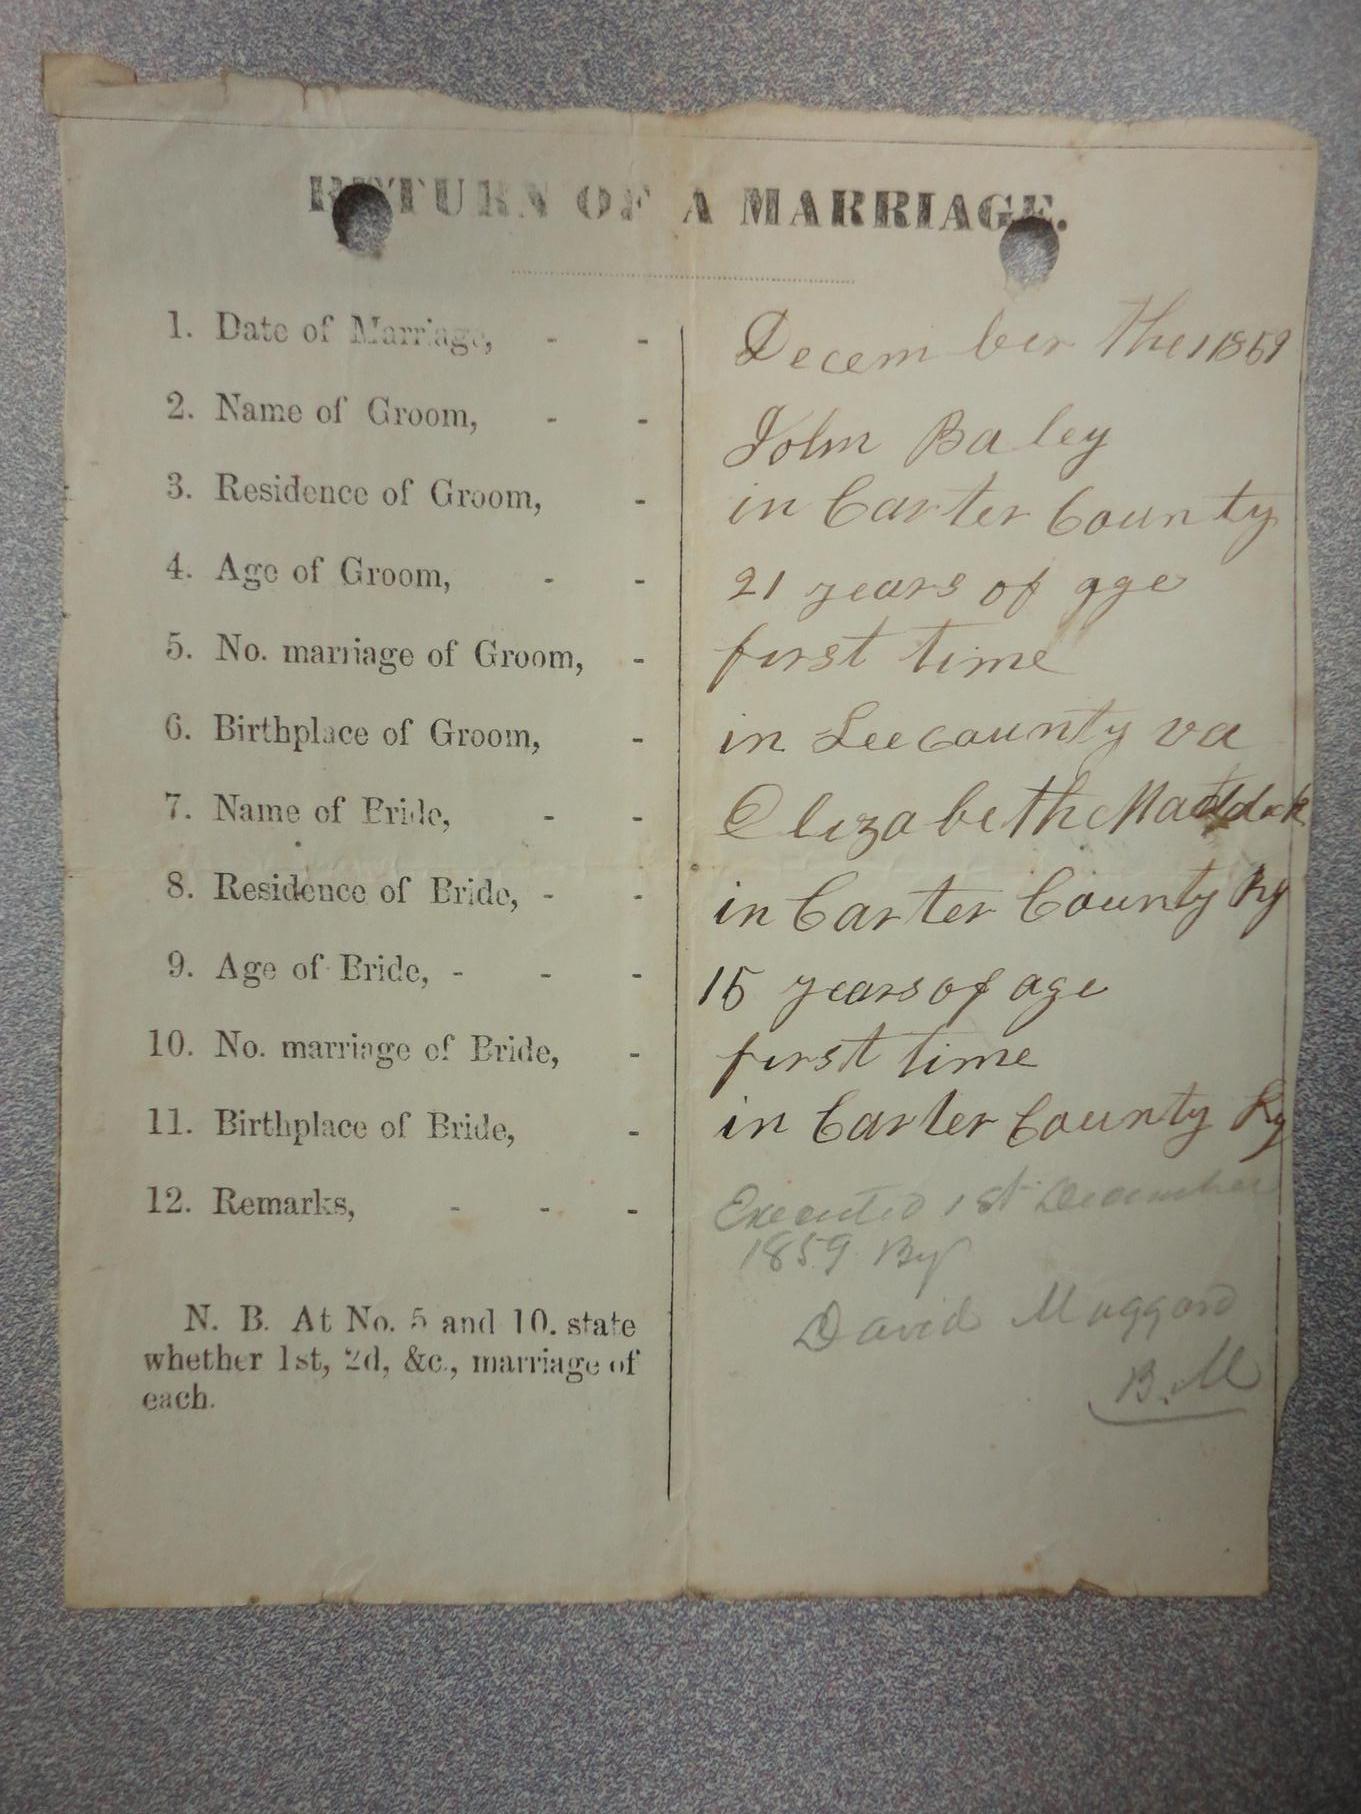 RETURN OF A MARRIAGE.
1. Date of Marriage, - - December the 1 1859
2. Name of Groom, - - John Baley
3. Residence of Groom, - in Carter County
4. Age of Groom, - - 21 years of age
5. No. marriage of Groom, - first time
6. Birthplace of Groom, - in Lee county va
7. Name of Bride, - - Elizabeth Maddok
8. Residence of Bride, - - in Carter County Ky
9. Age of Bride, - - - 15 years of age
10. No. marriage of Bride, - first time
11. Birthplace of Bride, - in Carter County Ky
12. Remarks, - - - Executed 1st December
1859 By
David Maggard
B. M
N. B. At No. 5 and 10. state
whether 1st, 2d, &c., marriage of
each.